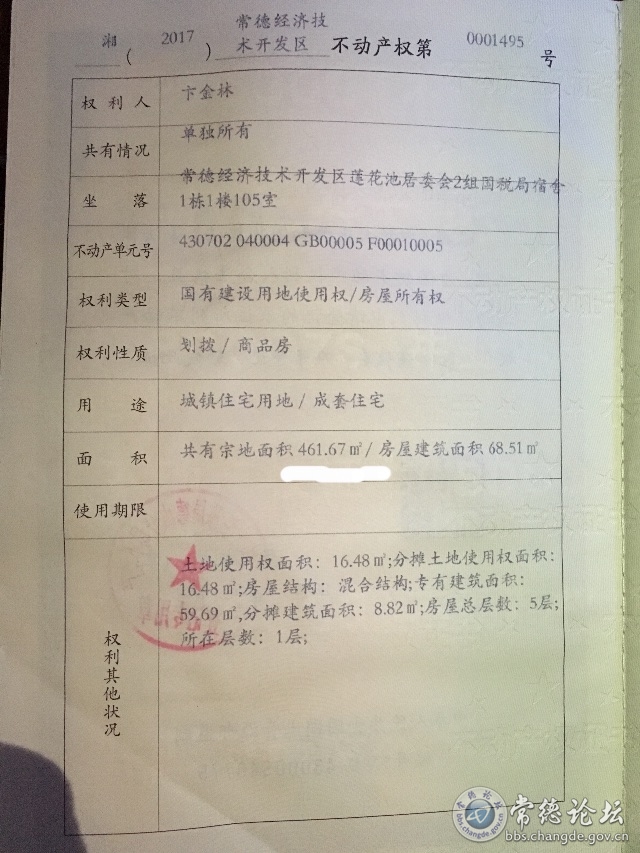 常德经济技
湘(2017)术开发区不动产权第0001495号
权利人 卞金林
共有情况 单独所有
坐落 常德经济技术开发区莲花池居委会2组国税局宿舍
1栋1楼105室
不动产单元号 430702 040004 GB00005 F00010005
权利类型 国有建设用地使用权/房屋所有权
权利性质 划拨/商品房
用途 城镇住宅用地/成套住宅
面积 共有宗地面积461.67㎡/房屋建筑面积68.51㎡
使用期限
权利其他状况
土地使用权面积：16.48㎡;分摊土地使用权面积：
16.48㎡;房屋结构：混合结构;专有建筑面积：
59.69㎡,分摊建筑面积：8.82㎡;房屋总层数：5层;
所在层数：1层;
常德论坛
bbs.changde.gov.cn